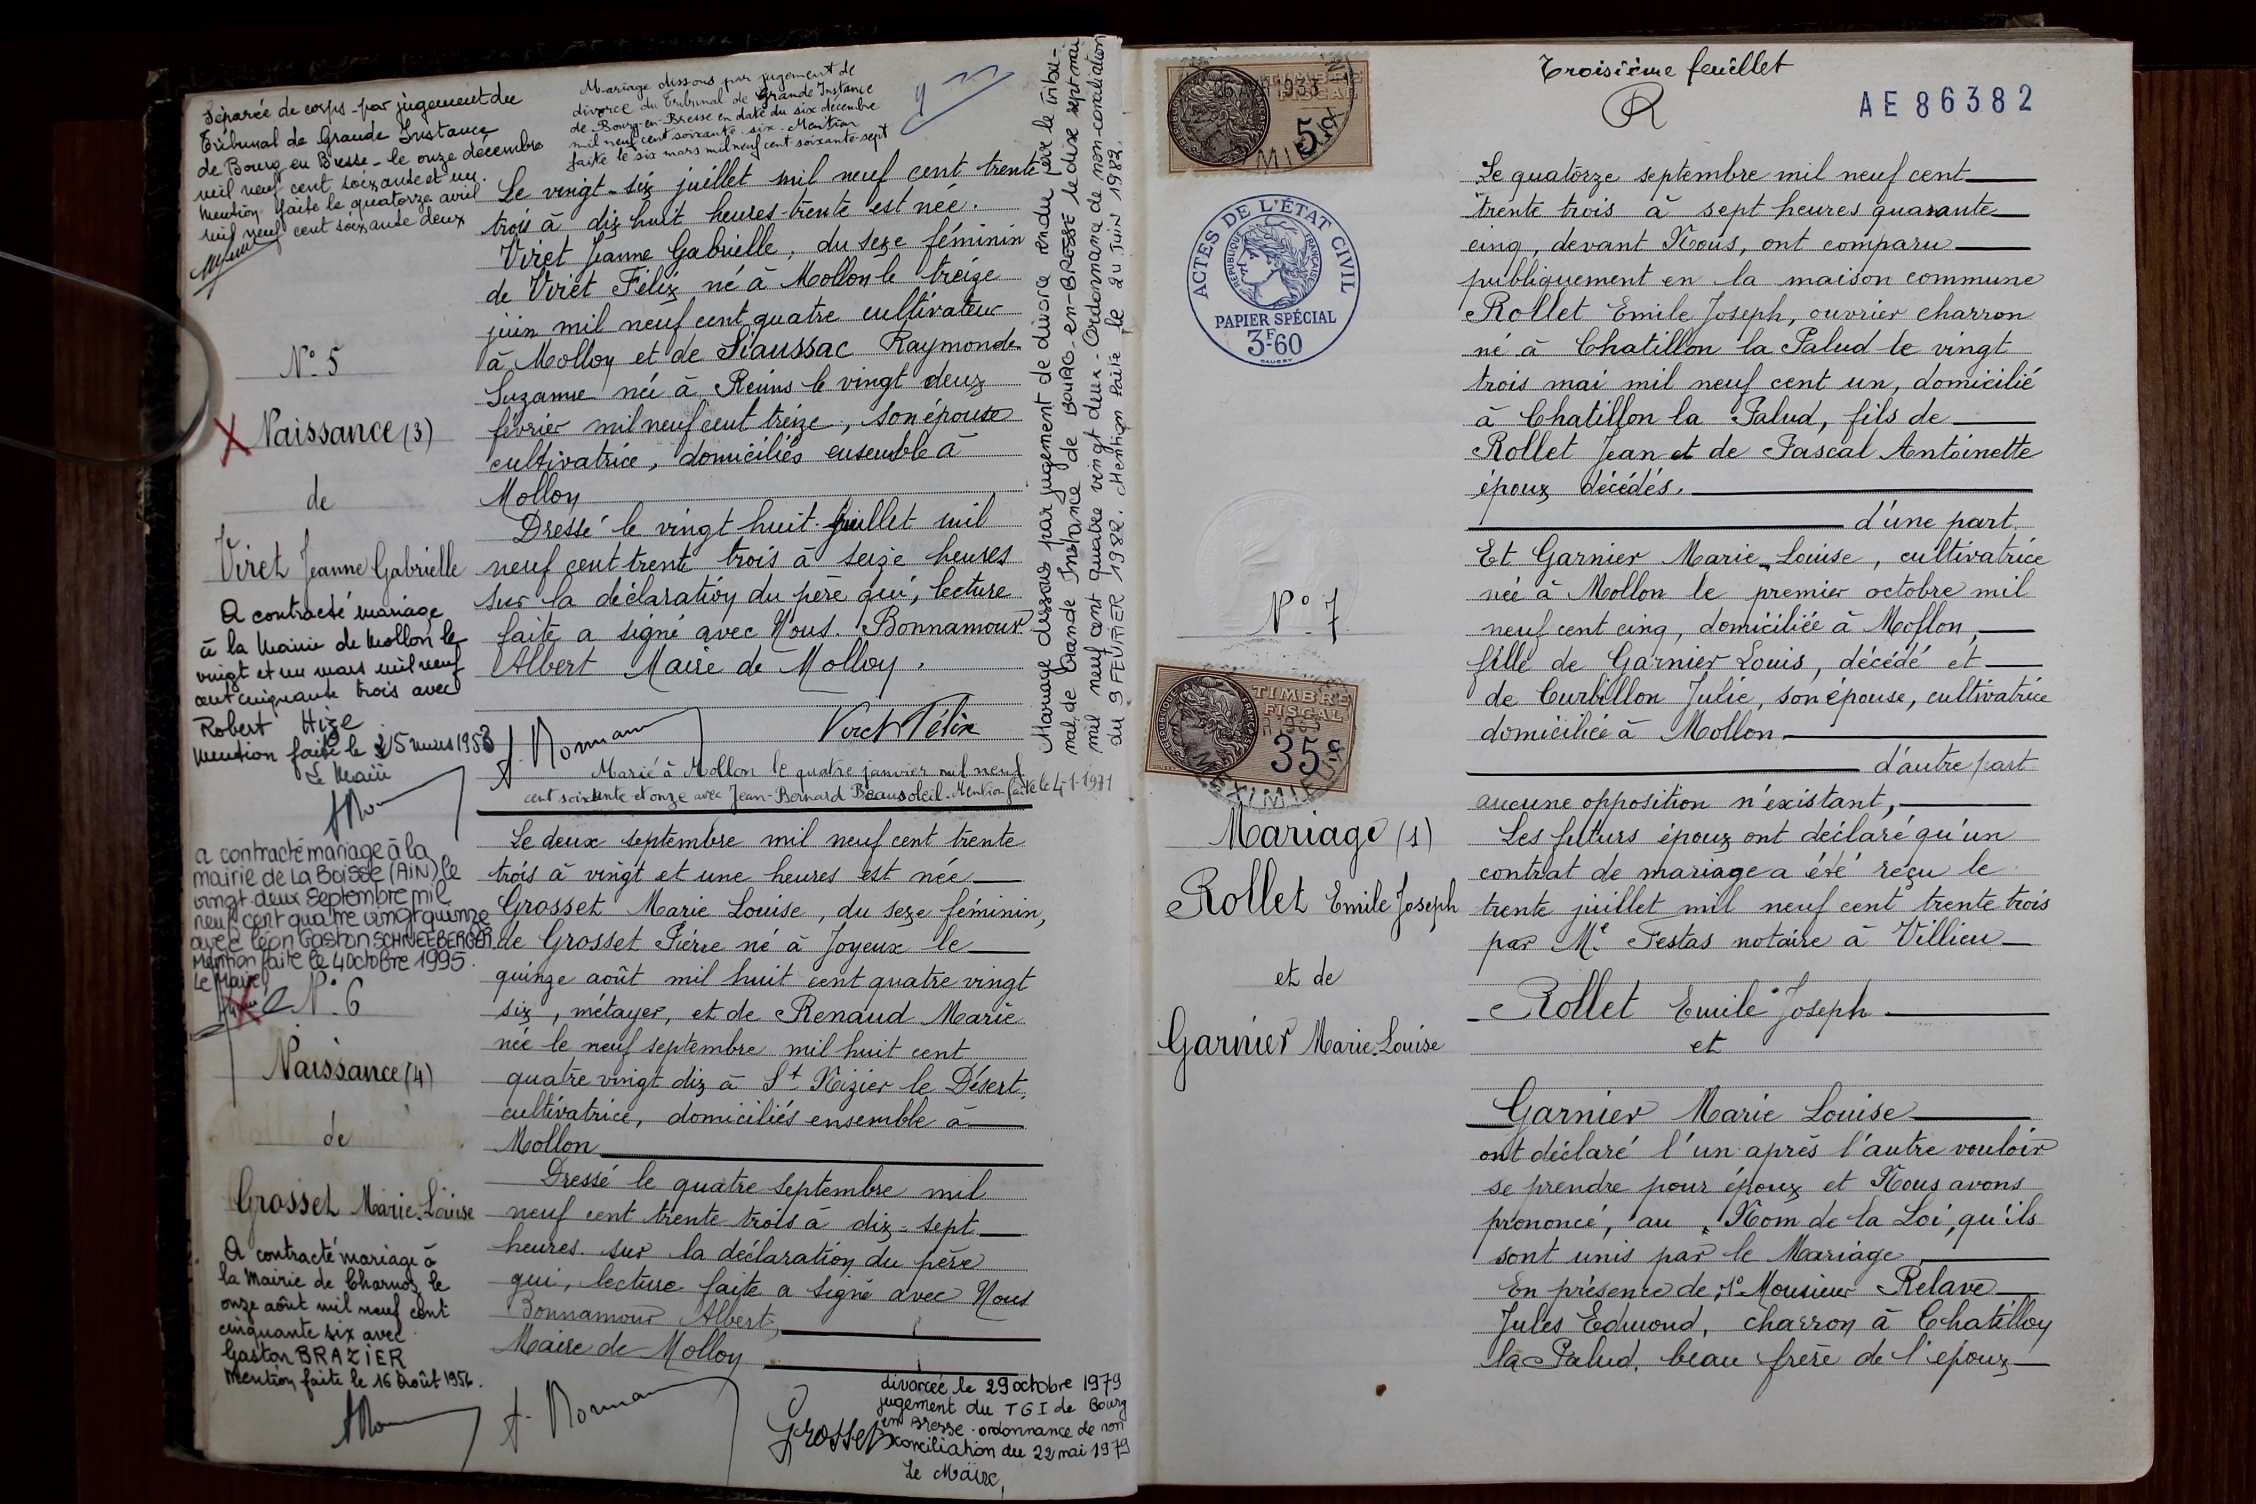 Séparée de corps par jugement du
Tribunal de Grande Instance
de Bourg en Bresse - le onze décembre
mil neuf cent soixante et un.
Mention faite le quatorze avril
mil neuf cent soixante deux
Mariage dissous par jugement de
divorce du Tribunal de Grande Instance
de Bourg-en-Bresse en date du six décembre
mil neuf cent soixante-six. Mention
faite le six mars mil neuf cent soixante-sept
N° 5
Naissance (3)
de
Viret Jeanne Gabrielle
A contracté mariage
à la Mairie de Mollon le
vingt et un mars mil neuf
cent cinquante trois avec
Robert Hize
Mention faite le 25 mars 1953
Le Maire
Le vingt-six juillet mil neuf cent trente
trois à dix huit heures trente est née.
Viret Jeanne Gabrielle, du sexe féminin
de Viret Félix né à Mollon le treize
juin mil neuf cent quatre cultivateur
à Mollon et de Siaussac Raymonde
Suzanne née à Reims le vingt deux
février mil neuf cent treize, son épouse
cultivatrice, domiciliés ensemble à
Mollon
Dressé le vingt huit juillet mil
neuf cent trente trois à seize heures
sur la déclaration du père qui, lecture
faite a signé avec Nous. Bonnamour
Albert Maire de Mollon.
Viret Félix
Marié à Mollon le quatre janvier mil neuf
cent soixante et onze avec Jean-Bernard Beausoleil. Mention faite le 4-1-1971
Mariage dissous par jugement de divorce rendu par le tribu-
nal de Grande Instance de BOURG-en-BRESSE le dix sept mai
mil neuf cent quatre vingt deux. Ordonnance de non-conciliation
du 9 FEVRIER 1982. Mention faite le 24 JUIN 1982.
a contracté mariage à la
mairie de La Boisse (AIN) le
vingt-deux Septembre mil
neuf cent quatre vingt quinze
avec Léon Gaston SCHNEEBERGER.
Mention faite le 4 octobre 1995.
Le Maire,
N° 6
Naissance (4)
de
Grosset Marie-Louise
A contracté mariage à
la Mairie de Charnoz le
onze août mil neuf cent
cinquante six avec
Gaston BRAZIER
Mention faite le 16 Août 1956.
Le deux septembre mil neuf cent trente
trois à vingt et une heures est née
Grosset Marie Louise, du sexe féminin,
de Grosset Pierre né à Joyeux le
quinze août mil huit cent quatre vingt
six, métayer, et de Renaud Marie
née le neuf septembre mil huit cent
quatre vingt dix à St Nizier le Désert,
cultivatrice, domiciliés ensemble à
Mollon
Dressé le quatre septembre mil
neuf cent trente trois à dix-sept
heures sur la déclaration du père
qui, lecture faite a signé avec Nous
Bonnamour Albert,
Maire de Mollon
Grosset
divorcée le 29 octobre 1979
jugement du TGI de Bourg
en Bresse. ordonnance de non
conciliation du 22 mai 1979
Le Maire,
TIMBRE
FISCAL
5
ACTES DE L'ÉTAT CIVIL
RÉPUBLIQUE FRANÇAISE
PAPIER SPÉCIAL
3F60
N° 7
TIMBRE
FISCAL
35c
MEXIMIEUX
Mariage (1)
Rollet Emile Joseph
et de
Garnier Marie-Louise
Troisième feuillet
AE 86382
Le quatorze septembre mil neuf cent
trente trois à sept heures quarante
cinq, devant Nous, ont comparu
publiquement en la maison commune
Rollet Emile Joseph, ouvrier charron
né à Chatillon la Palud le vingt
trois mai mil neuf cent un, domicilié
à Chatillon la Palud, fils de
Rollet Jean et de Pascal Antoinette
époux décédés.
d'une part.
Et Garnier Marie-Louise, cultivatrice
née à Mollon le premier octobre mil
neuf cent cinq, domiciliée à Mollon,
fille de Garnier Louis, décédé et
de Curbillon Julie, son épouse, cultivatrice
domiciliée à Mollon
d'autre part
aucune opposition n'existant,
Les futurs époux ont déclaré qu'un
contrat de mariage a été reçu le
trente juillet mil neuf cent trente trois
par Me Festas notaire à Villieu
Rollet Emile Joseph
et
Garnier Marie Louise
ont déclaré l'un après l'autre vouloir
se prendre pour époux et Nous avons
prononcé, au Nom de la Loi, qu'ils
sont unis par le Mariage
En présence de, 1° Monsieur Relave
Jules Edmond, charron à Chatillon
la Palud, beau frère de l'époux